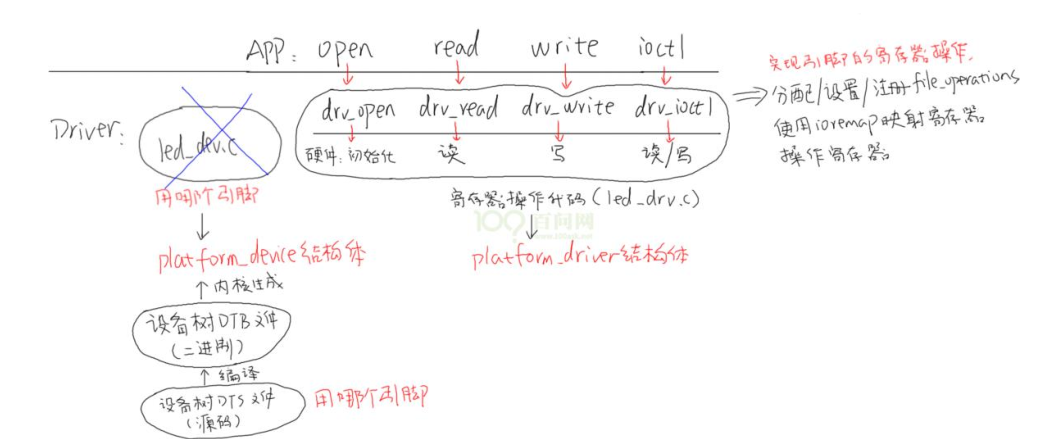 APP: open read write ioctl
Driver:
led_dev.c
用哪个引脚
platform_device结构体
内核生成
设备树DTB文件
(二进制)
编译
设备树DTS文件
(源码)
用哪个引脚
drv_open drv_read drv_write drv_ioctl
硬件: 初始化 读 写 读/写
寄存器操作代码 (led_drv.c)
100 百问网
platform_driver结构体
实现引脚的寄存器操作,
分配/设置/注册file_operations
使用ioremap映射寄存器
操作寄存器